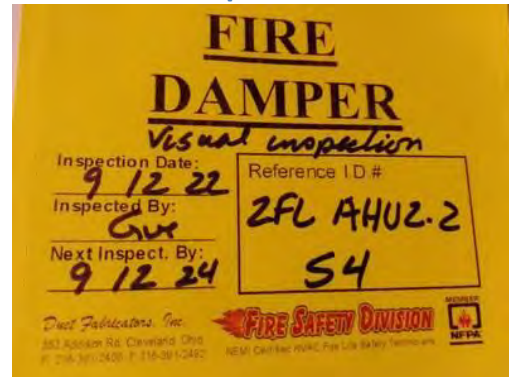 FIRE
DAMPER
Visual inspection
Inspection Date:
9 12 22
Inspected By:
Next Inspect. By:
9 12 24
Reference ID #
2FL AHU2.2
S4
Duct Fabricators, Inc.
Addison Rd. Cleveland, Ohio
FIRE SAFETY DIVISION
NEMI Certified HVAC Fire Life Safety Technicians
MEMBER
NFPA